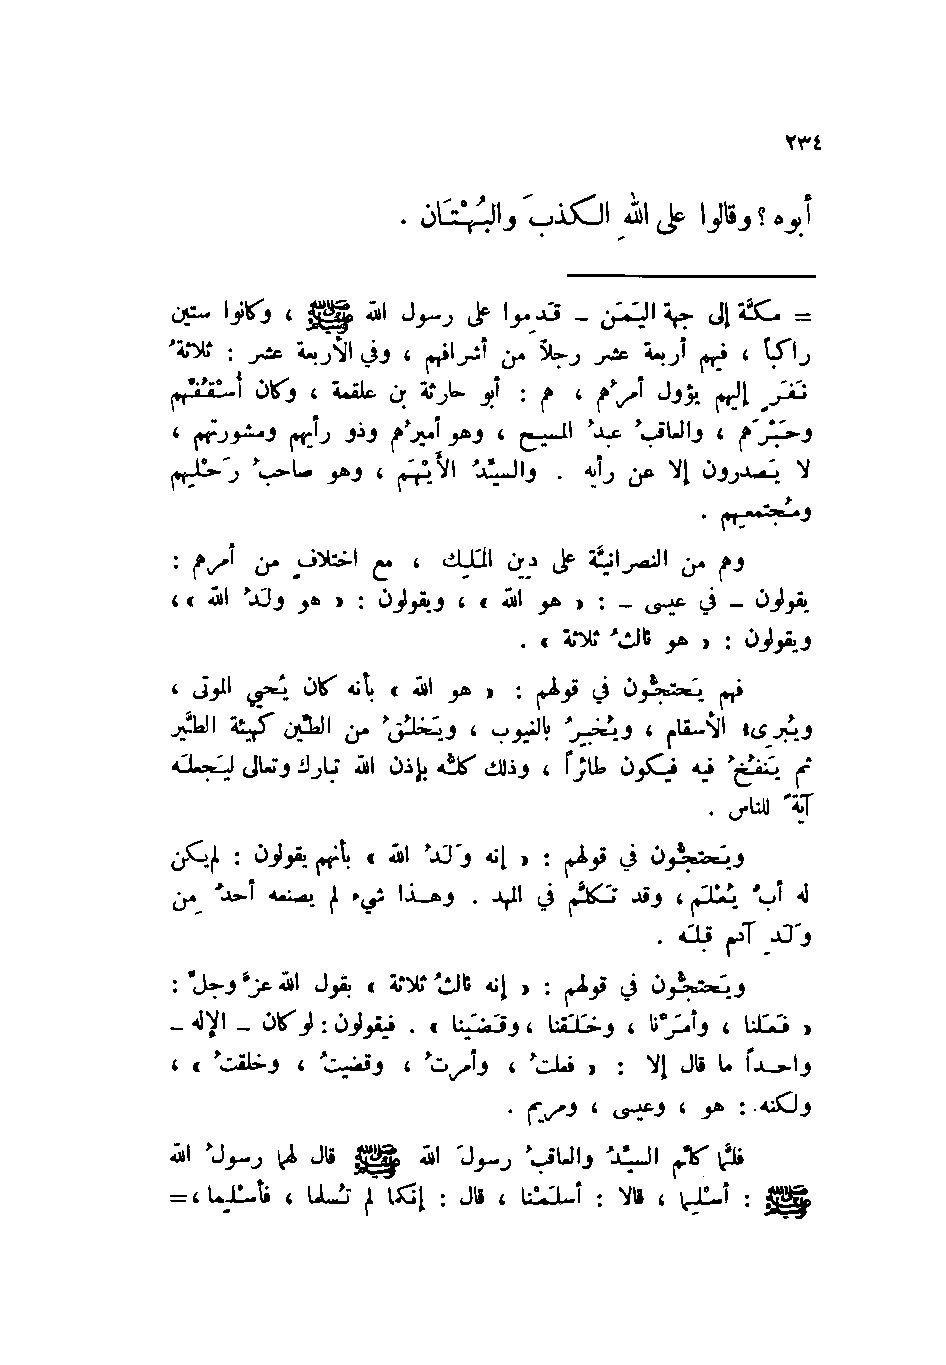 ٢٣٤
أبوه ؟ وقالوا على اللهِ الكذبَ والبُهْتَان .
= مكَّة إلى جهة اليَمَن – قَدِموا على رسول الله ﷺ ، وكانوا ستين
راكباً ، فيهم أربعة عشر رجلاً من أشرافهم ، وفي الأربعة عشر : ثلاثةُ
نَفَرٍ إليهم يؤول أمرُهم ، هم : أبو حارثة بن علقمة ، وكان أُسْقُفَّهم
وحَبْرَهم ، والعاقبُ عبدُ المسيح ، وهو أميرُهم وذو رأيهم ومشورتهم ،
لا يَصدرون إلا عن رأيه . والسيِّدُ الأَيْهَم ، وهو صاحبُ رَحْلِهم
ومُجتمعهم .
وهم من النصرانيَّة على دِينِ المَلِك ، مع اختلافٍ من أمرهم :
يقولون – في عيسى – : « هو الله » ، ويقولون : « هو ولَدُ الله » ،
ويقولون : « هو ثالثُ ثلاثة » .
فهم يَحتجُّون في قولهم : « هو الله » بأنه كان يُحيي الموتى ،
ويُبرِىء الأسقام ، ويُخبِرُ بالغيوب ، ويَخلُقُ من الطِّين كهيئة الطَّير
ثم يَنفُخُ فيه فيكون طائراً ، وذلك كلُّه بإذن الله تبارك وتعالى ليَجعلَه
آيةً للناس .
ويَحتجُّون في قولهم : « إنه وَلَدُ الله » بأنهم يقولون : لم يكن
له أبٌ يُعْلَم ، وقد تَكلَّم في المهد . وهذا شيء لم يصنعه أحدٌ مِن
وَلَدِ آدم قبلَه .
ويَحتجُّون في قولهم : « إنه ثالثُ ثلاثة » بقول الله عزَّ وجلَّ :
« فَعَلنا ، وأمَرْنا ، وخَلَقنا ، وقَضَينا » . فيقولون : لو كان – الإله –
واحداً ما قال إلا : « فعلتُ ، وأمرتُ ، وقضيتُ ، وخلقتُ » ،
ولكنه : هو ، وعيسى ، ومريم .
فلمَّا كلَّم السيِّدُ والعاقبُ رسولَ الله ﷺ قال لهما رسولُ الله
ﷺ : أسْلِما ، قالا : أسلَمْنا ، قال : إنكما لم تُسلما ، فأسْلِما ، =